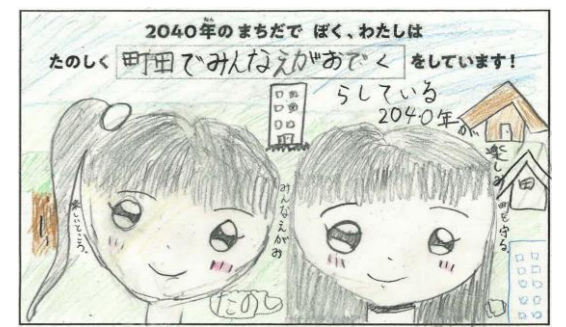 2040年のまちだで ぼく、わたしは
たのしく 町田でみんなえがおでく をしています!
らしている
2040年が
楽しみ
町を守る
田
みんなえがお
楽しいところ。
たのし